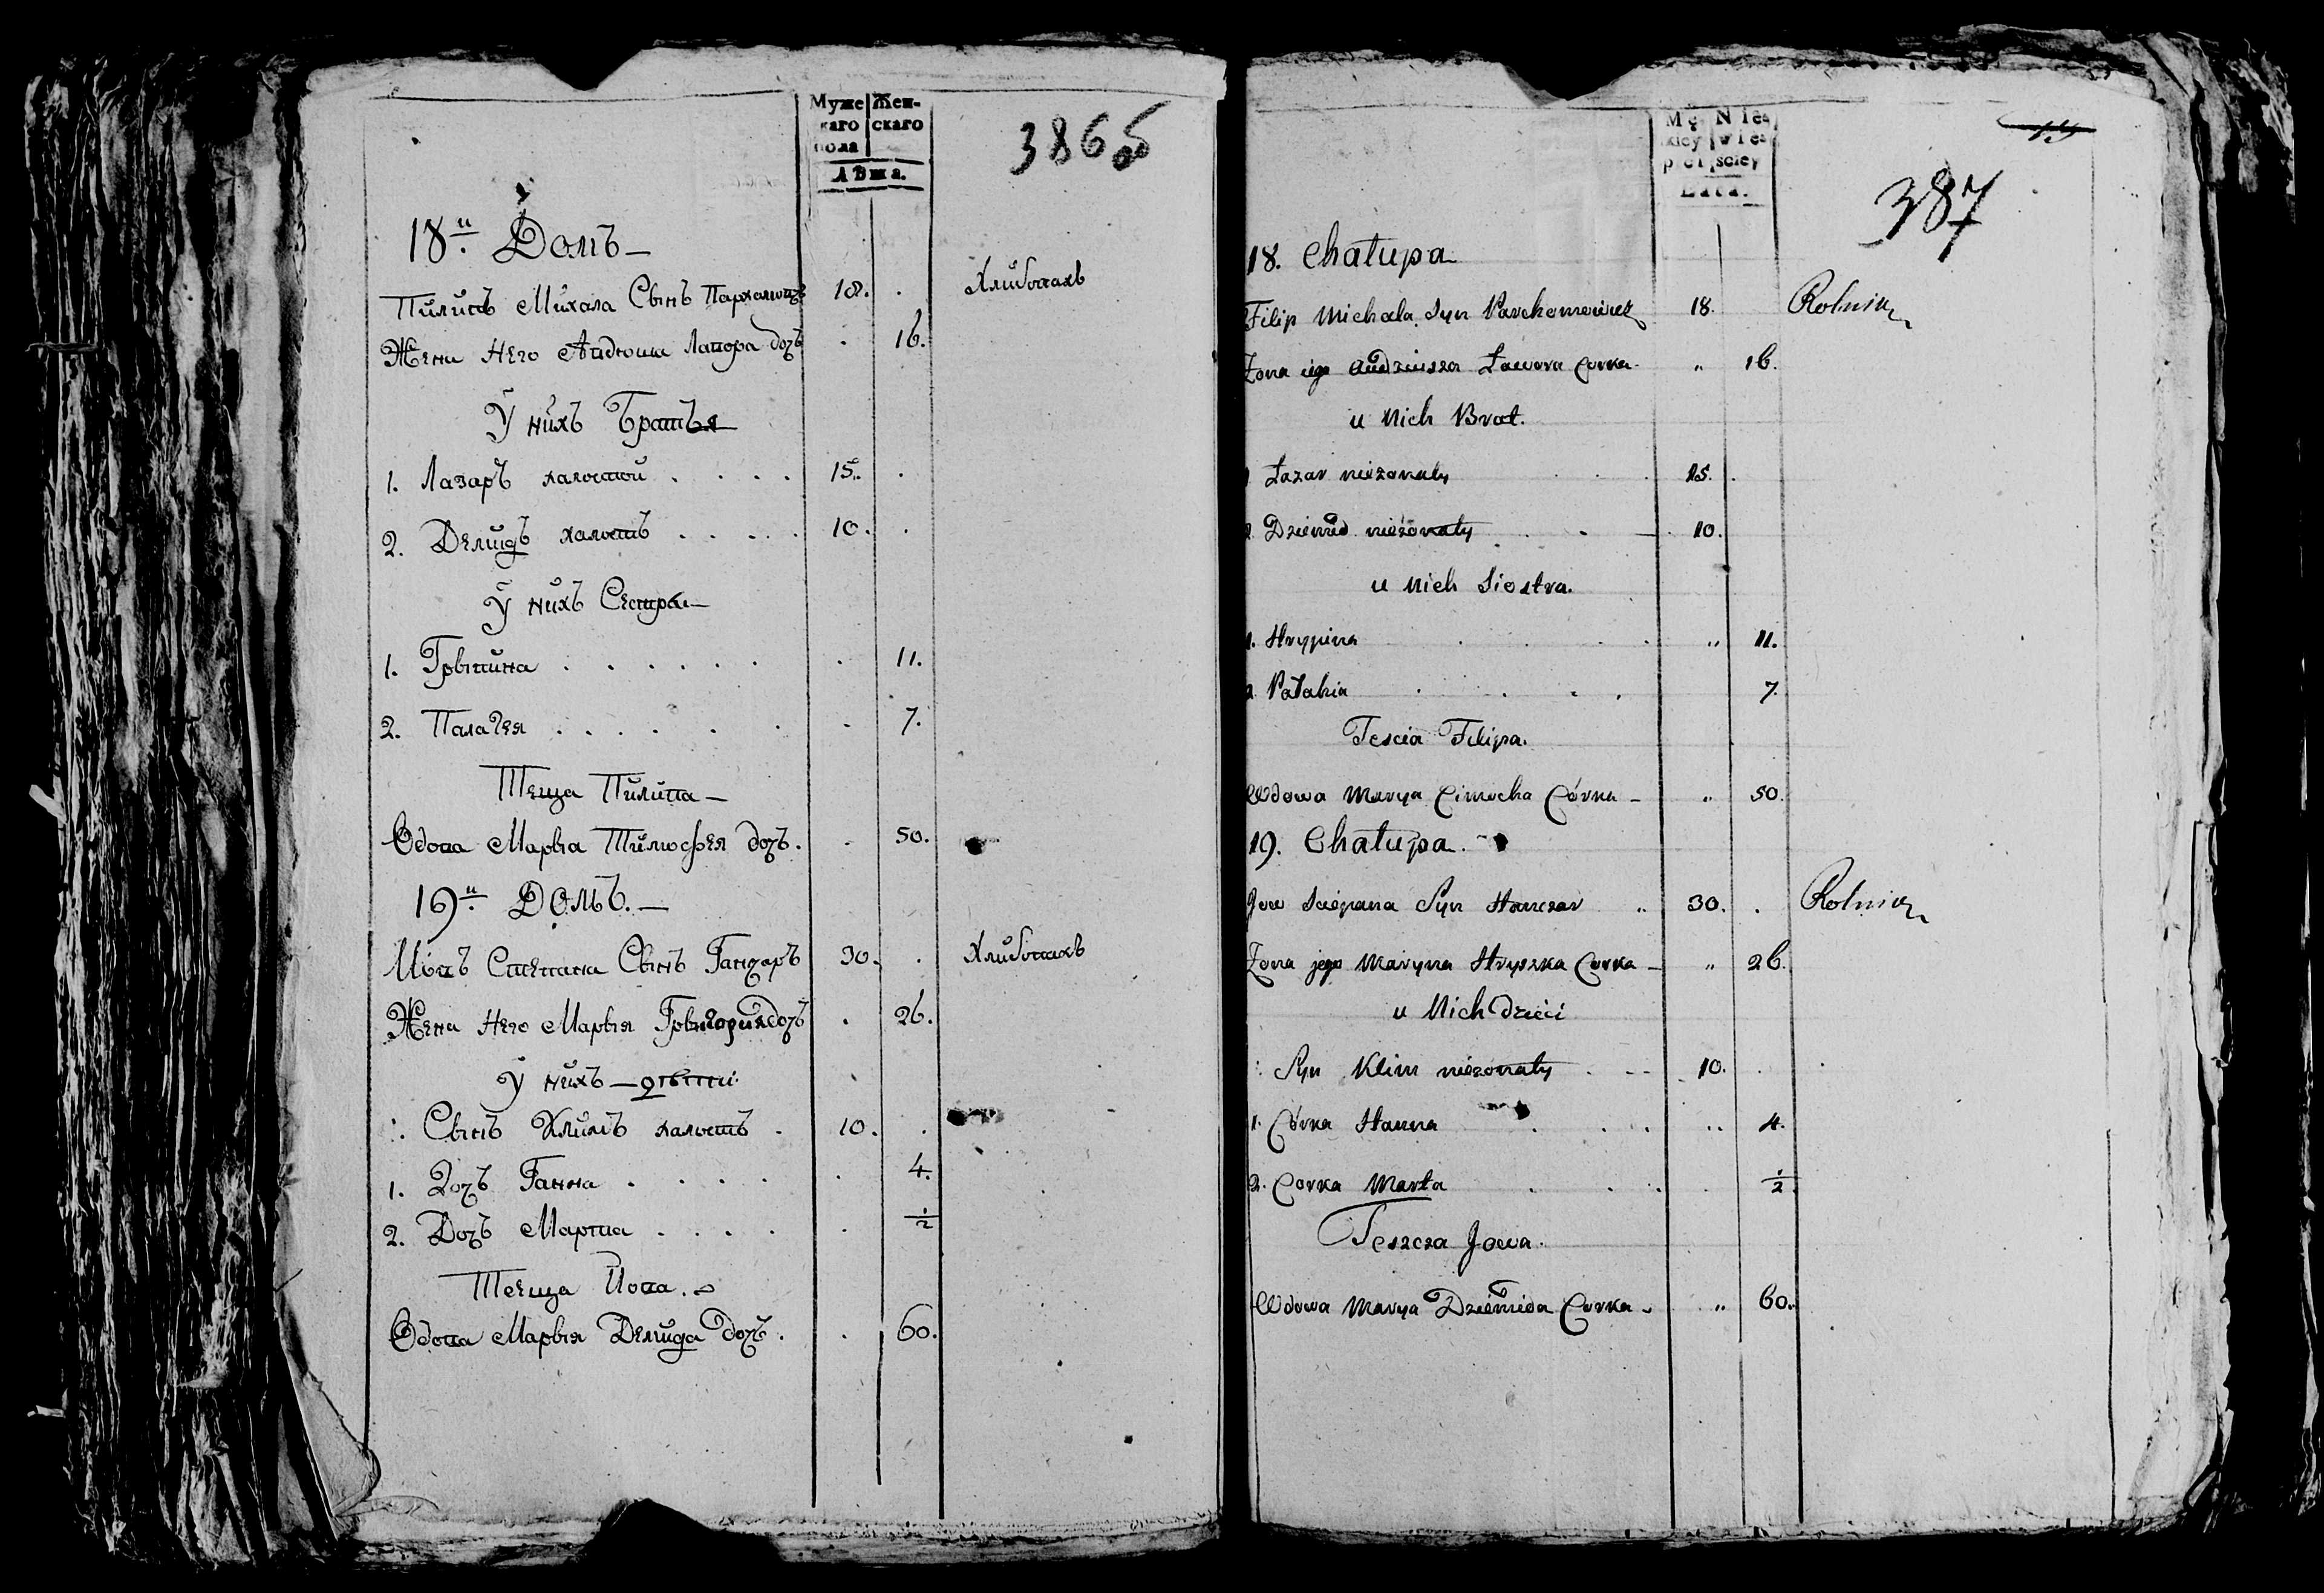 Муже Жен-
каго скаго
пола
Лѣта.
386 об
18й Домъ —
Пилипъ Михала Сынъ Пархамовъ 18. . Хлибопахъ
Жена Него Аидюша Лавора дочъ . 16.
У нихъ Братья
1. Лазаръ халостой . . . . 15. .
2. Демидъ халостъ . . . . 10. .
У нихъ Сестры —
1. Грыпина . . . . . . . 11.
2. Палагея . . . . . . 7.
Теща Пилипа —
Вдова Марыа Тимофея дочъ. . 50.
19й Домъ. —
Иовъ Степана Сынъ Ганчаръ 30. . Хлибопахъ
Жена Него Марыя Грыгория дочъ . 26.
У нихъ — дѣти
: Сынъ Климъ халостъ . 10. .
1. Дочъ Ганна . . . . . 4.
2. Дочъ Марта . . . . . 1/2
Теща Иова.
Вдова Марыя Демида дочъ . . 60.
Mę- Nie-
kiey wies
płci sciey
Lata.
19
387
18. Chałupa
Filip Michała Syn Parchomowicz 18. Rolnik
Żona iego Audziusza Ławora Corka. " 16.
u Nich Brat.
1 Łazar nieżonaty . . 15. .
2. Dziemid nieżonaty . - 10.
u Nich Siostra.
1. Hrypina . . . . " 11.
2. Pałahia . . . . 7.
Tescia Filipa.
Wdowa Marya Cimocha Córka - " 50.
19. Chałupa.
Jow Sciepana Syn Hanczar " 30. . Rolnik
Żona jego Maryna Hryszka Corka - " 26.
u Nich Dzieci
: Syn Klim nieżonaty . - - 10. .
1. Córka Hanna . . . . " 4.
2. Corka Marta . . . . 1/2.
Teszcza Jowa.
Wdowa Marya Dziemida Corka - " 60.